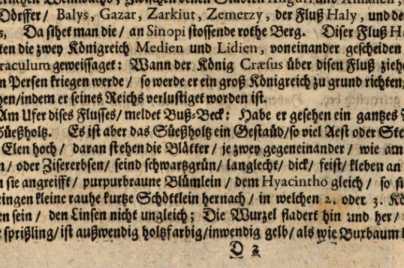 Dörffer / Balys, Gazar, Zarkiut, Zemerzy, der Fluß Haly, und de
s, Da sihet man die / an Sinopi stossende rothe Berg. Diser Fluß H
ten die zwey Königreich Medien und Lidien, voneinander gescheiden
raculum geweissaget: Wann der König Crœsus über disen Fluß ziehe
n Persen kriegen werde / so werde er ein groß Königreich zu grund richten
hen / indem er seines Reichs verlustiget worden ist.
Am Ufer dises Flusses / meldet Buß-Beck: Habe er gesehen ein gantzes
Süeßholtz. Es ist aber das Süeßholtz ein Gestäud / so viel Aest oder Ste
Elen hoch / daran stehen die Blätter / je zwey gegeneinander / wie am
n / oder Zisererbsen / seind schwartzgrün / langlecht / dick / feist / kleben an
n sie angreifft / purpurbraune Blümlein / dem Hyacintho gleich / so si
ringen kleine rauhe kurtze Schöttlein hernach / in welchen 2. oder 3. K
en sein / den Linsen nicht ungleich; Die Wurzel fladert hin und her /
sprißling / ist außwendig holtzfarbig / inwendig gelb / als wie Buxbaum
D 2